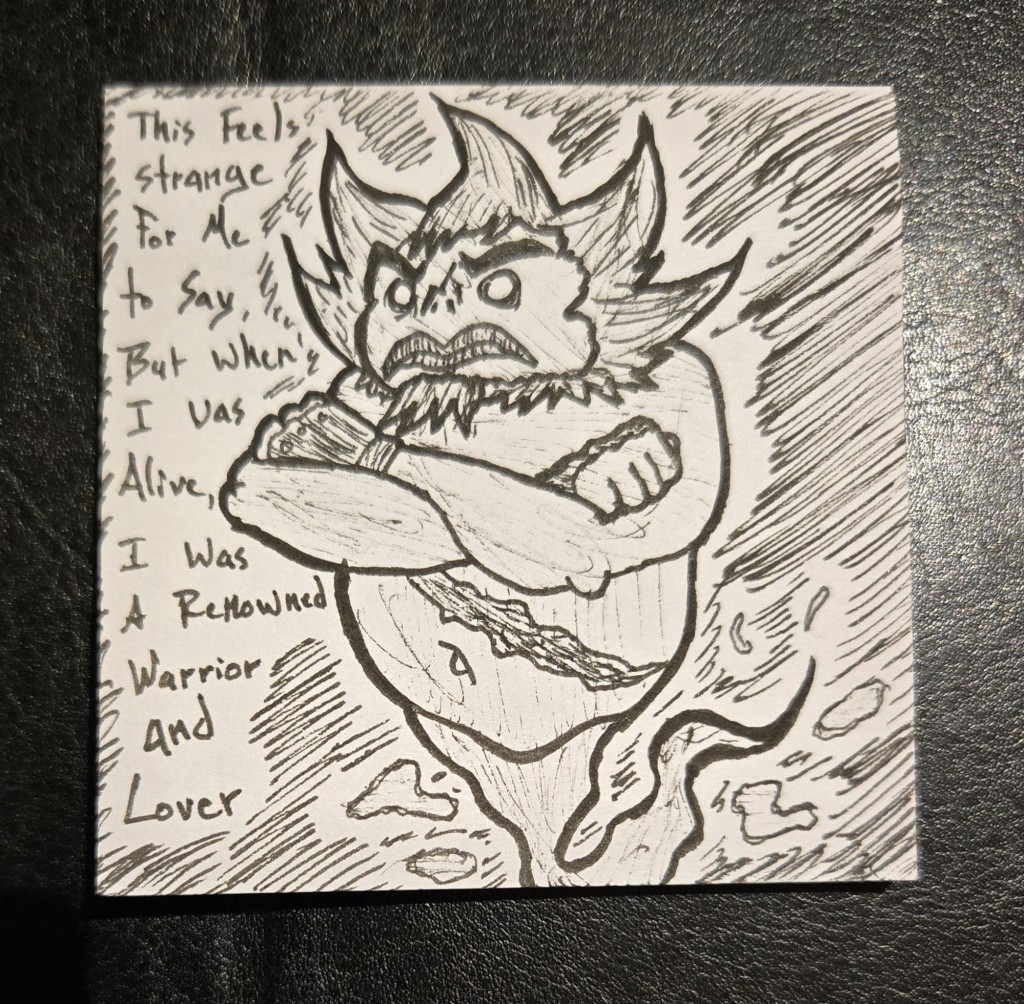 This Feels
strange
For Me
to say,
But when
I was
Alive,
I was
A Renowned
Warrior
and
Lover